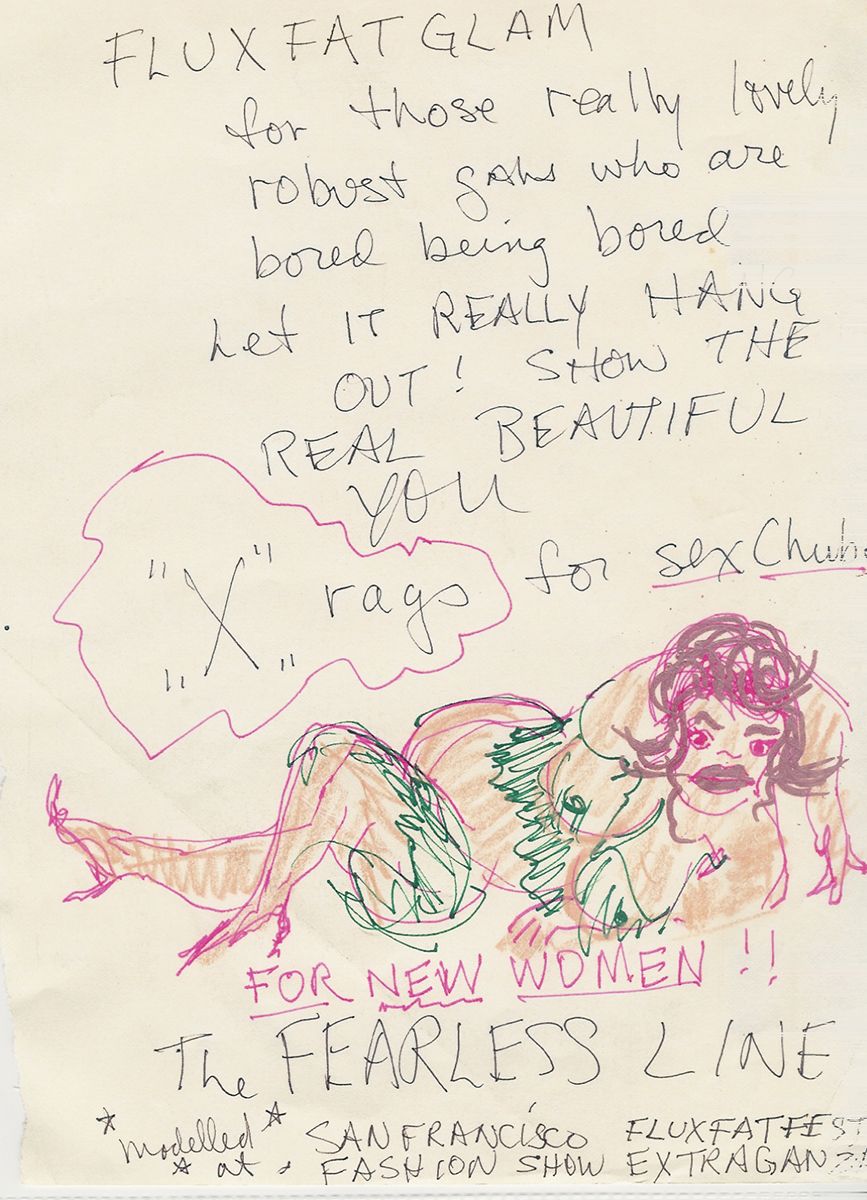 FLUXFATGLAM
for those really lovely
robust gals who are
bored being bored
Let IT REALLY HANG
OUT! SHOW THE
REAL BEAUTIFUL
YOU
"X" rags for sex Chubs
FOR NEW WOMEN!!
The FEARLESS LINE
*modelled* SAN FRANCISCO FLUXFATFEST
* at * FASHION SHOW EXTRAGANZA